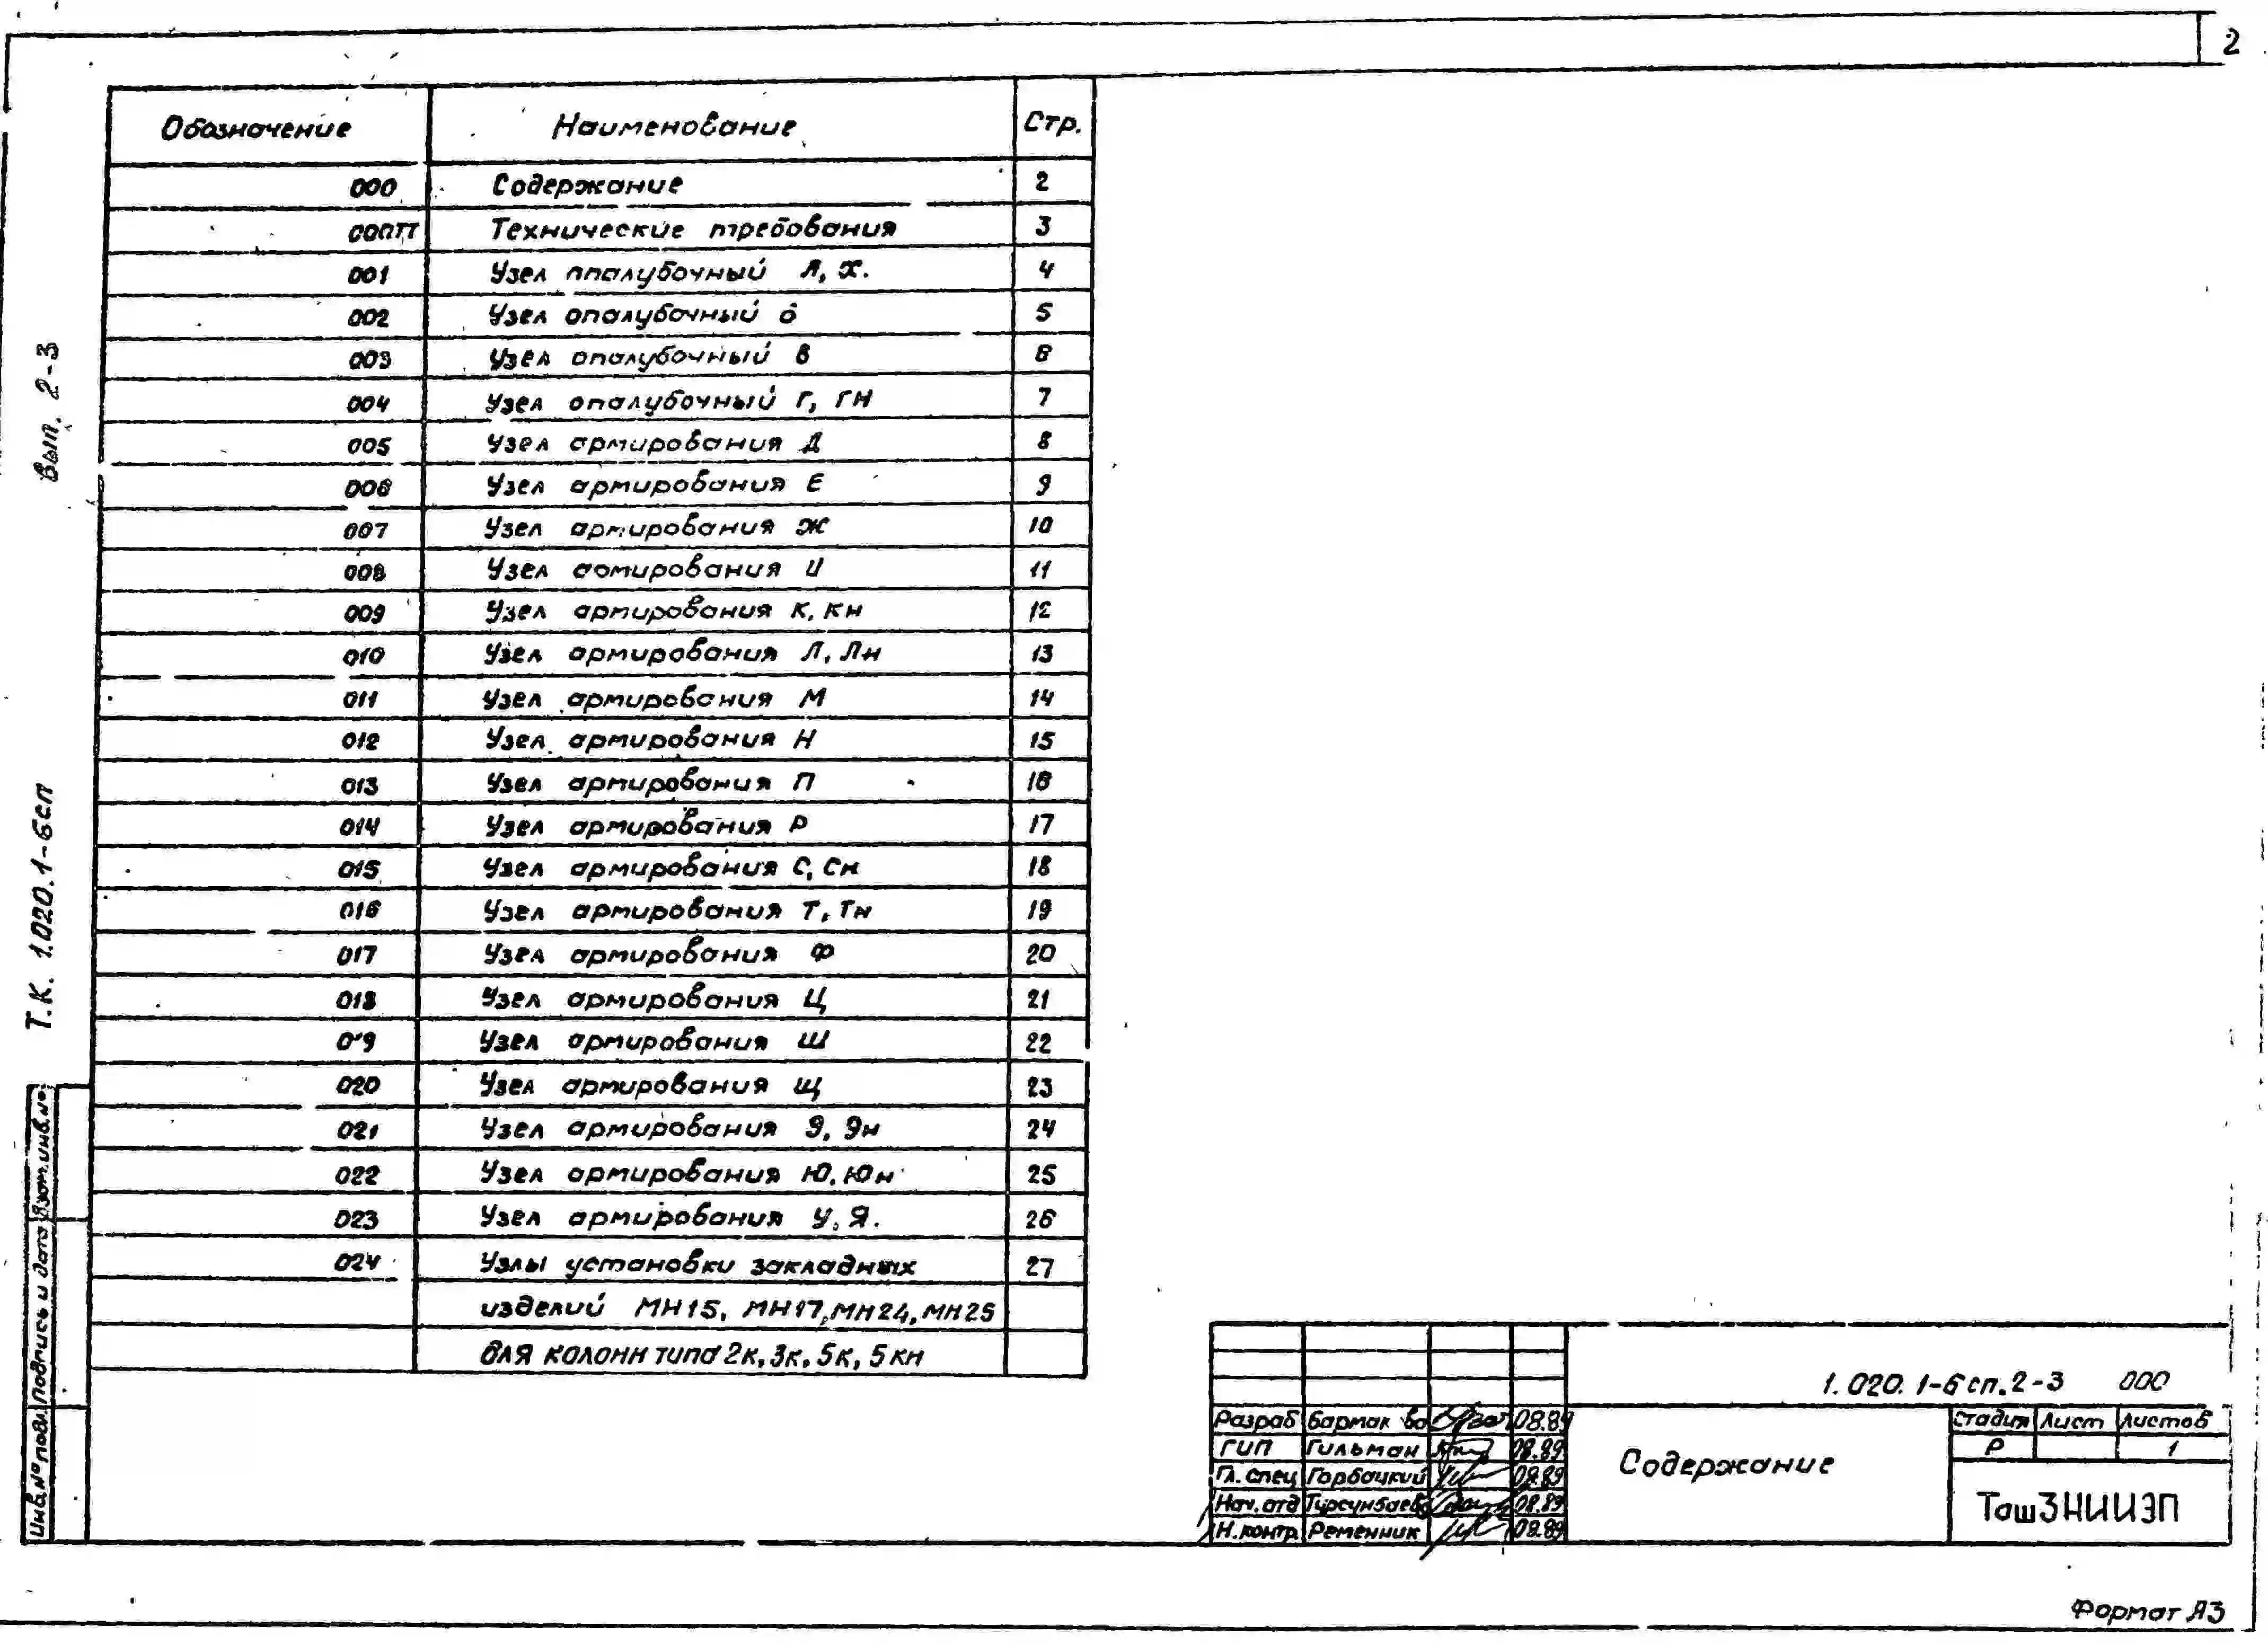 2
Обозначение Наименование Стр.
000 Содержание 2
000ТТ Технические требования 3
001 Узел опалубочный А, Х. 4
002 Узел опалубочный б 5
003 Узел опалубочный в 6
004 Узел опалубочный Г, ГН 7
005 Узел армирования Д 8
006 Узел армирования Е 9
007 Узел армирования Ж 10
008 Узел армирования И 11
009 Узел армирования К, КН 12
010 Узел армирования Л, Лн 13
011 Узел армирования М 14
012 Узел армирования Н 15
013 Узел армирования П 16
014 Узел армирования Р 17
015 Узел армирования С, Сн 18
016 Узел армирования Т, Тн 19
017 Узел армирования Ф 20
018 Узел армирования Ц 21
019 Узел армирования Ш 22
020 Узел армирования Щ 23
021 Узел армирования Э, Эн 24
022 Узел армирования Ю, Юн 25
023 Узел армирования У, Я. 26
024 Узлы установки закладных 27
изделий МН15, МН17, МН24, МН25
для колонн типа 2к, 3к, 5к, 5кн
Вып. 2-3
Т.К. 1.020.1-6сп
Взам.инв.№
Подпись и дата
Инв.№подл.
1.020.1-6сп.2-3 000
Разраб 08.89
ГИП Гильман 08.89
Гл.спец Горбацкий 08.89
Нач.отд Турсунбаев 08.89
Н.контр. Ременник 08.89
Содержание
Стадия Лист Листов
Р 1
ТашЗНИИЭП
Формат А3